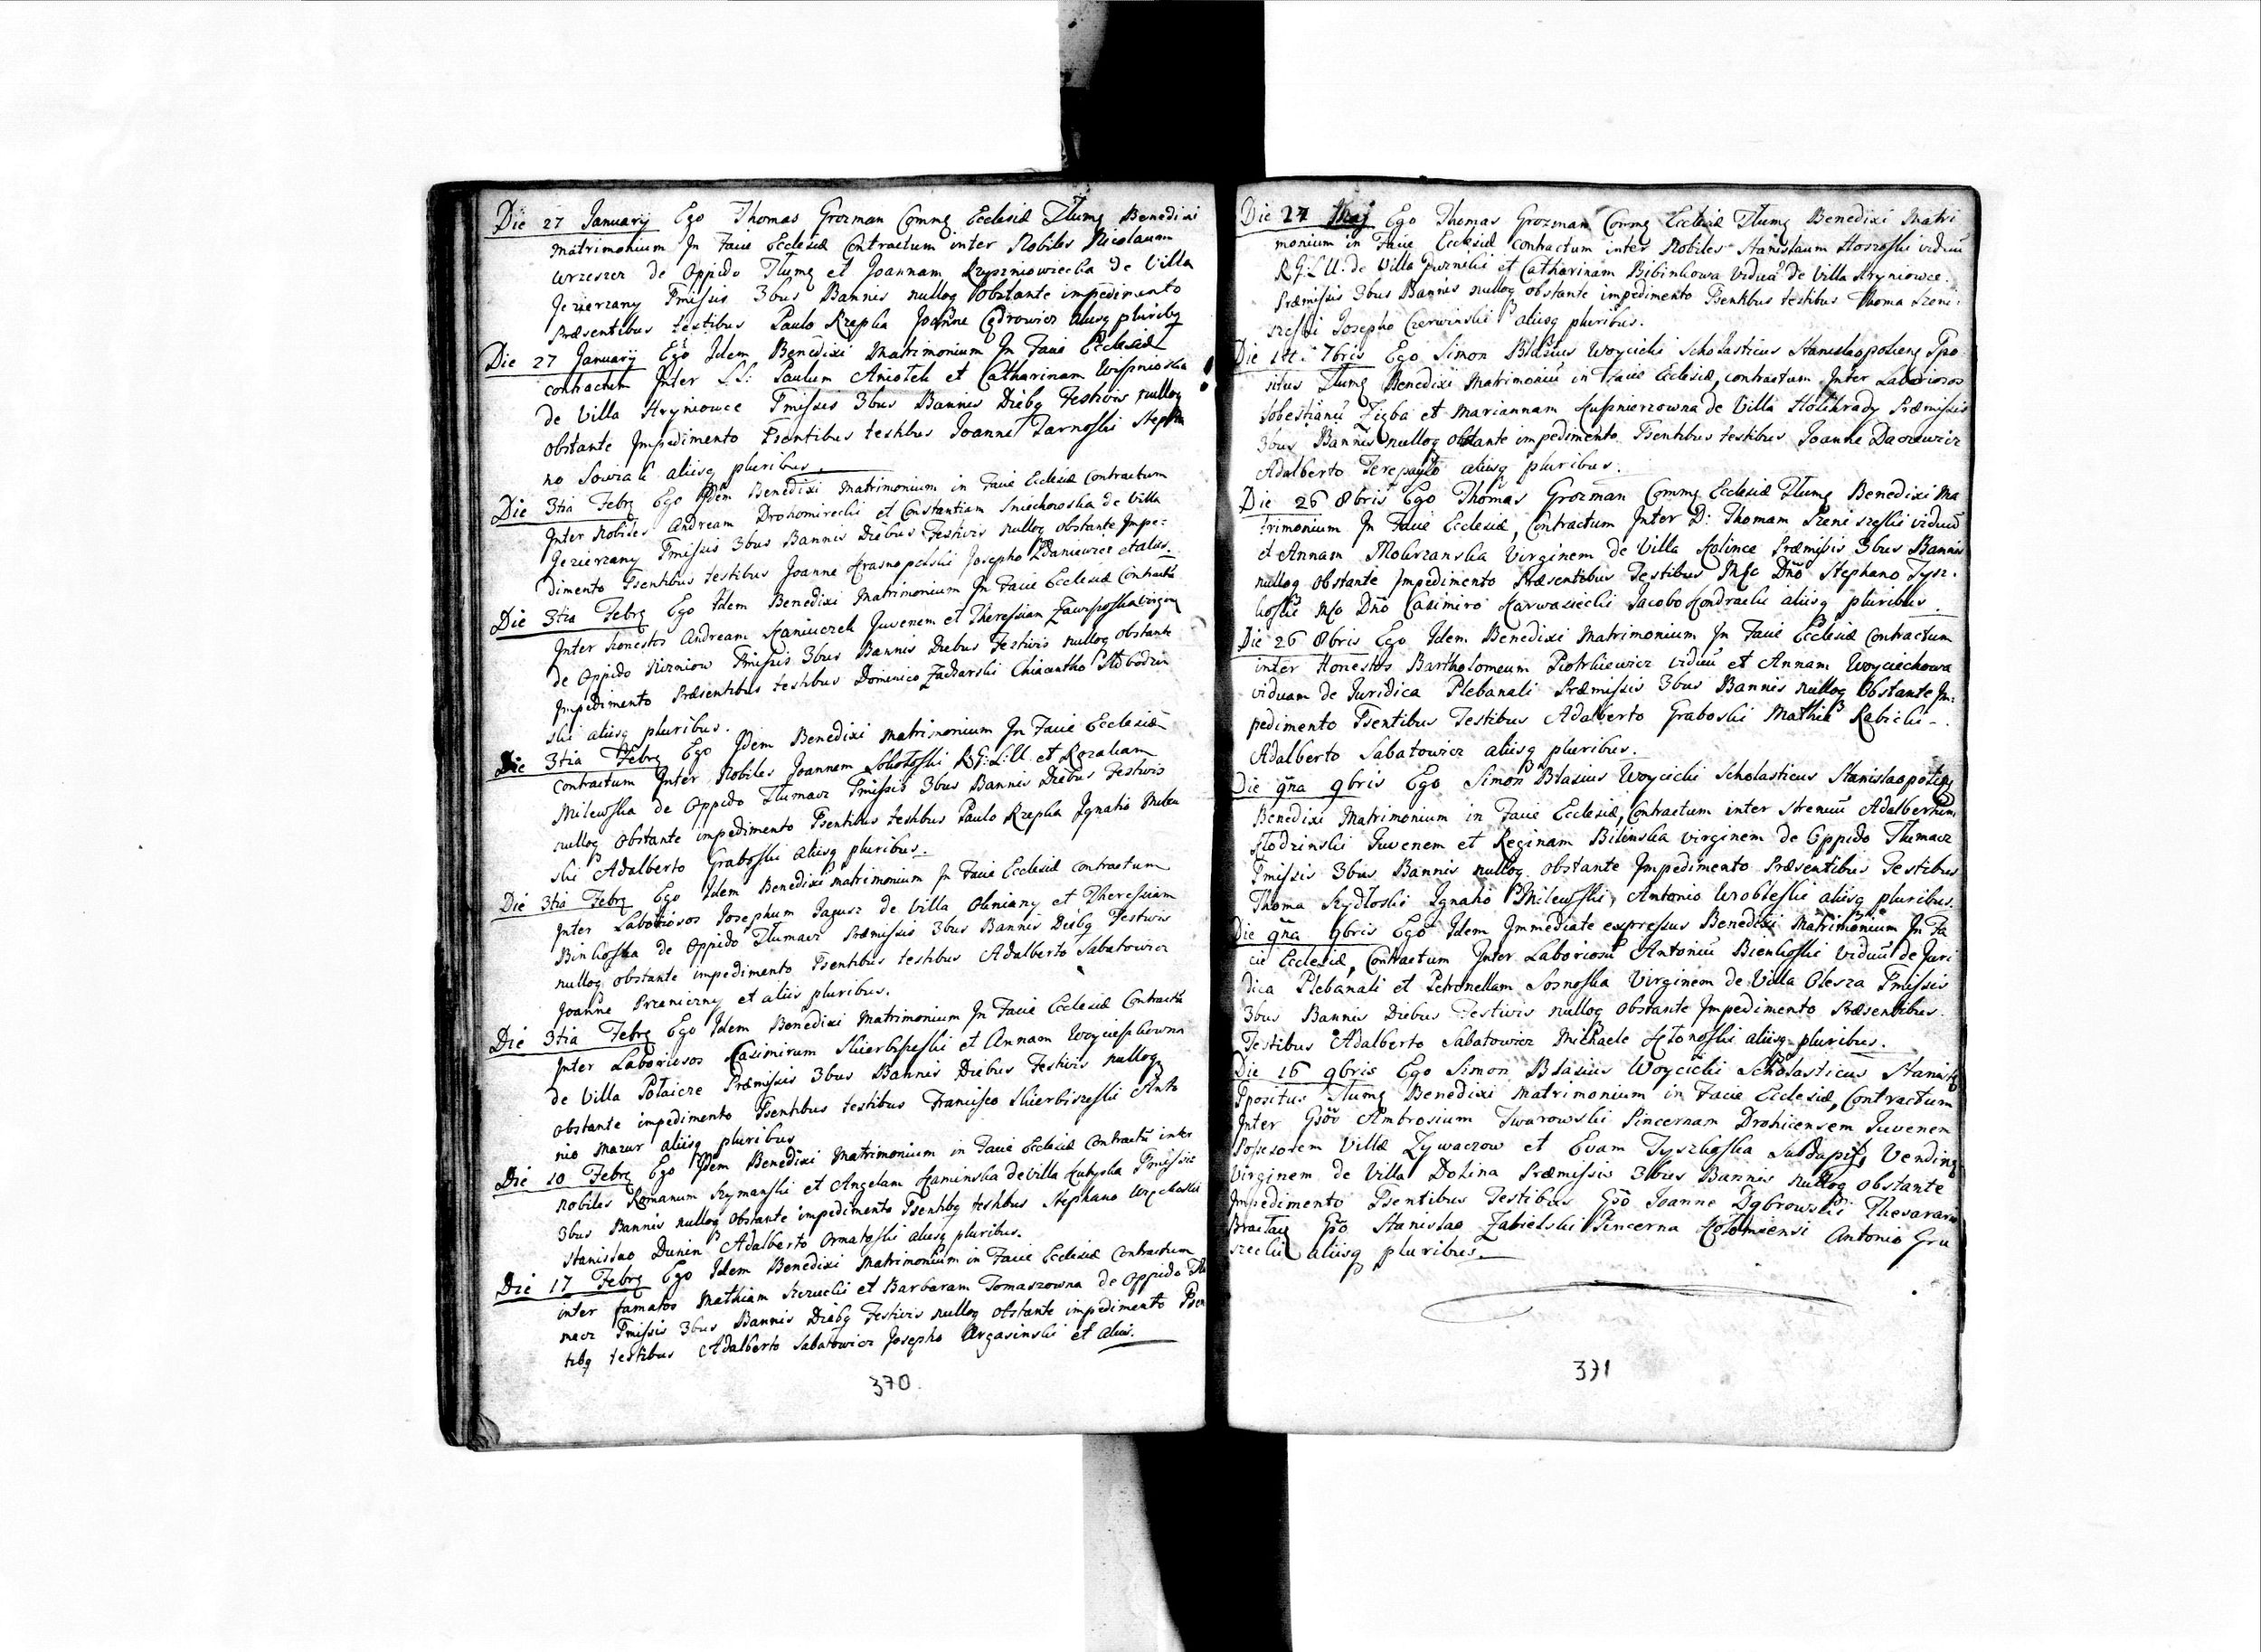 Die 27 January Ego Thomas Grozman Commg Ecclesiæ Tlumg Benedixi
Matrimonium In Facie Ecclesiæ Contractum inter Nobiles Nicolaum
Wrzeszcz de Oppido Tlumg et Joannam Krzyszniowiecka de Villa
Jezierzany Pmissis 3bus Bannis nulloq obstante impedimento
Præsentibus testibus Paulo Rzepka Joanne Cedrowicz aliisq pluribq
Die 27 January Ego Idem Benedixi Matrimonium In Facie Ecclesiæ
contractum Inter L.L: Paulum Aniotek et Catharinam Wisznioska
de Villa Hryniowce Pmissis 3bus Bannis Diebq Festivis nulloq
obstante Impedimento Psentibus testibus Joanne Tarnoski Stepha
no Sowiak aliisq pluribus.
Die 3tia Febrg Ego Idem Benedixi Matrimonium in Facie Ecclesiæ Contractum
Inter Nobiles Andream Drohomirecki et Constantiam Smiechoroska de Villa
Jezierzany Pmissis 3bus Bannis Diebus Festivis nulloq obstante Impe=
dimento Psentibus testibus Joanne Krasnopolski Josepho Zdaniewicz et aliis.
Die 3tia Febrg Ego Idem Benedixi Matrimonium In Facie Ecclesiæ Contractũ
Inter Honestos Andream Kaniuczek Juvenem et Theressiam Virginem
de Oppido Nizniow Pmissis 3bus Bannis Diebus Festivis nulloq obstante
Impedimento Præsentibus testibus Dominico Zacharski Chiacintho Slobodzin
ski aliisq pluribus.
Die 3tia Febrg Ego Idem Benedixi Matrimonium In Facie Ecclesiæ
contractum Inter Nobiles Joannem Sokołoski R:G:L:U et Rozaliam
Milewska de Oppido Tlumacz Pmissis 3bus Bannis Diebus Festivis
nulloq obstante impedimento Psentibus testibus Paulo Rzepka Ignatio Milew
ski Adalberto Graboski aliisq pluribus.
Die 3tia Febrg Ego Idem Benedixi Matrimonium In Facie Ecclesiæ contractum
Inter Laboriosos Josephum Jagusz de Villa Oleniany et Theressiam
Binkoska de Oppido Tlumacz Præmissis 3bus Bannis Diebq Festivis
nulloq obstante impedimento Psentibus testibus Adalberto Sabatowicz
Joanne Przeniczny et aliis pluribus.
Die 3tia Febrg Ego Idem Benedixi Matrimonium In Facie Ecclesiæ Contractũ
Inter Laboriosos Casimirum Skierbiszeski et Annam
de Villa Pałaicze Præmissis 3bus Bannis Diebus Festivis nulloq
obstante impedimento Psentibus testibus Francisco Skierbiszeski Anto
nio Mazur aliisq pluribus
Die 10 Febrg Ego Idem Benedixi Matrimonium in Facie Ecclesiæ Contractũ inter
Nobiles Romanum Szymanski et Angelam Kaminska de Villa Kutyska Pmissis
3bus Bannis nulloq obstante impedimento Psentibq testibus Stephano
Stanislao Dunin Adalberto Ornatoski aliisq pluribus.
Die 17 Febrg Ego Idem Benedixi Matrimoniũm in Facie Ecclesiæ Contractum
inter famatos Mathiam et Barbaram Tomaszowna de Oppido Tlu
macz Pmissis 3bus Bannis Diebq Festivis nulloq obstante impedimento Psen
tibq testibus Adalberto Sabatowicz Josepho Argasinski et aliis.
370.
Die 27 Maj Ego Thomas Grozman Commg Ecclesiæ Tlumg Benedixi Matri
monium in Facie Ecclesiæ contractum inter Nobiles Stanislaum Hoszoski viduũ
R G L U: de Villa et Catharinam Bibinkowa Viduã de Villa Hryniowce.
Præmissis 3bus Bannis nulloq obstante impedimento Psentibus testibus Thoma Szeni=
szeski Josepho Czerwinski aliisq pluribus.
Die 14. 7bris Ego Simon Blasius Woycicki Scholasticus Stanislaopolieng Ppo
situs Tlumg Benedixi Matrimoniũ in Facie Ecclesiæ, contractum Inter Laboriosos
Sobestianũ Zięba et Mariannam Kusznierzowna de Villa Holihrady Præmissis
3bus Bannis nulloq obstante impedimento Psentibus testibus Joanne Daszewicz
Adalberto aliisq pluribus.
Die 26 8bris Ego Thomas Grozman Commg Ecclesiæ Tlumg Benedixi Ma
trimonium In Facie Ecclesiæ, Contractum Inter D: Thomam Szeniszeski viduũ
et Annam Mokrzanska Virginem de Villa Kolince Præmissis 3bus Bannis
nulloq obstante Impedimento Præsentibus Testibus Mfc Dño Stephano Tysz=
koski Mfc Dño Casimiro Karwasiecki Jacobo Kondracki aliisq pluribus.
Die 26 8bris Ego Idem Benedixi Matrimonium In Facie Ecclesiæ Contractum
inter Honestos Bartholomeum Piotrkiewicz viduũ et Annam Woyciechowa
viduam de Juridica Plebanali Præmissis 3bus Bannis nulloq Obstante Im=
pedimento Psentibus Testibus Adalberto Graboski Mathia Rabicki
Adalberto Sabatowicz aliisq pluribus.
Die 9ña 9bris Ego Simon Blasius Woycicki Scholasticus Stanislaopolieng
Benedixi Matrimonium in Facie Ecclesiæ, Contractum inter Strenuũ Adalbertum
Kłodzinski Juvenem et Reginam Bilinska virginem de Oppido Tlumacz
Pmissis 3bus Bannis nulloq obstante Impedimento Præsentibus Testibus
Thoma Szydłoski Ignatio Milewski, Antonio Wrobleski aliisq pluribus.
Die 9ña 9bris Ego Idem Immediate expressus Benedixi Matrimonium In Fa
cie Ecclesiæ, Contractum Inter Laboriosũ Antoniũ Bienkoski Viduũ de Juri
dica Plebanali et Petronellam Sosnoska Virginem de Villa Olesza Pmissis
3bus Bannis Diebus Festivis nulloq Obstante Impedimento Præsentibus
Testibus Adalberto Sabatowicz Michaele Kłonoski aliisq pluribus.
Die 16 9bris Ego Simon Blasius Woycicki Scholasticus
Ppositus Tlumg Benedixi Matrimonium in Facie Ecclesiæ, Contractum
Inter Gsõs Ambrosium Twarowski Pincernam Drohicensem Juvenem
Possesorem Villæ Zywaczow et Evam Tyszkoska
Virginem de Villa Dolina Præmissis 3bus Bannis nulloq Obstante
Impedimento Psentibus Testibus Gso Joanne Dąbrowski
Gso Stanislao Zabielski Pincerna Antonio Gru
szecki aliisq pluribus.
371